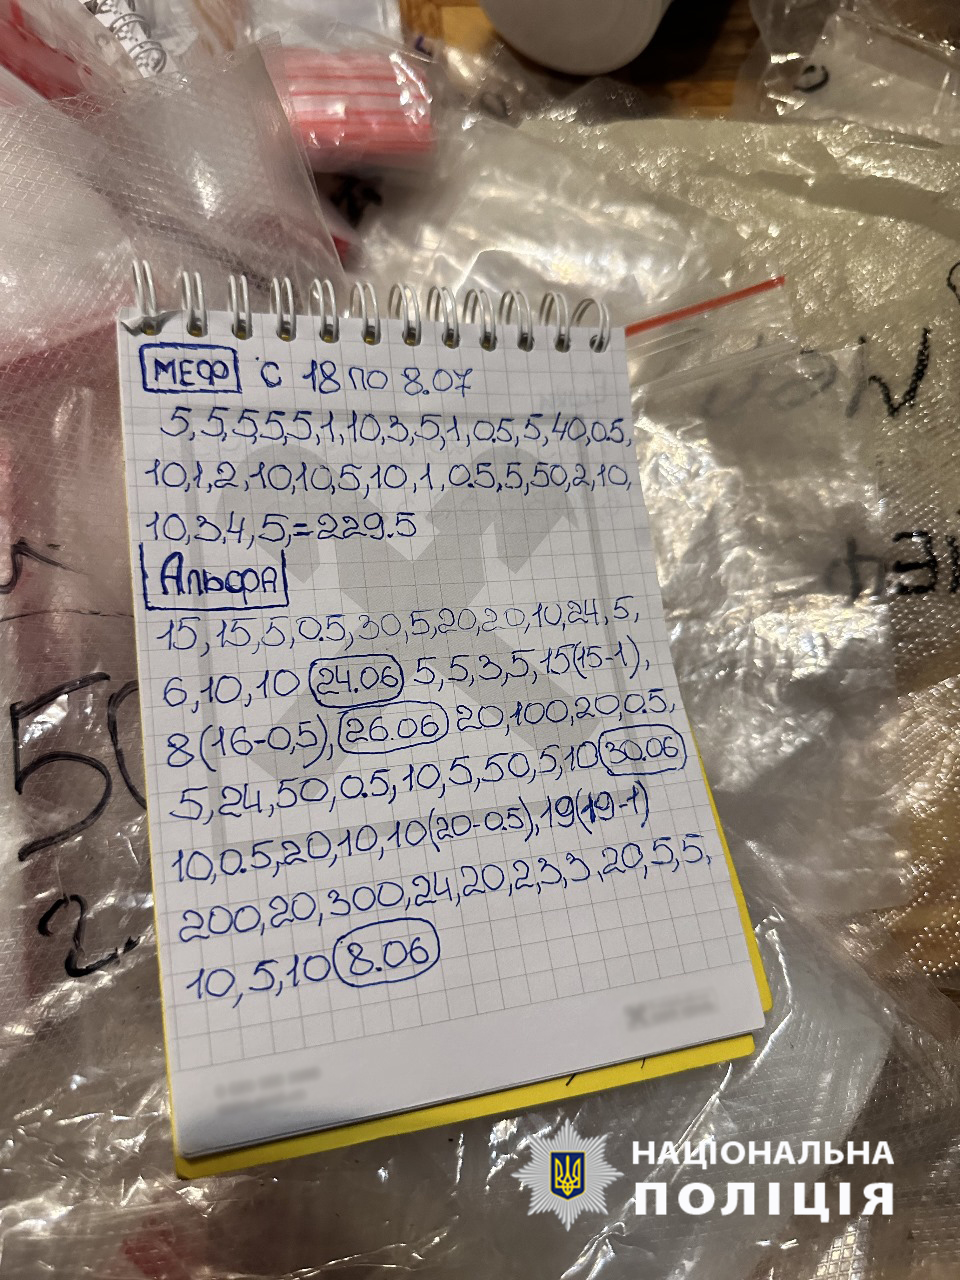 МЕФ С 18 ПО 8.07
5,5,5,5,5,1,10,3,5,1,0.5,5,40,0.5,
10,1,2,10,10,5,10,1,0.5,5,50,2,10,
10,3,4,5,=229.5
Альфа
15,15,5,0.5,30,5,20,20,10,24,5,
6,10,10 24.06 5,5,3,5,15(15-1),
8(16-0,5), 26.06 20,100,20,0.5,
5,24,50,0.5,10,5,50,5,10 30.06
10,0.5,20,10,10(20-0.5),19(19-1)
200,20,300,24,20,2,3,3,20,5,5,
10,5,10 8.06
50
2.
НАЦІОНАЛЬНА
ПОЛІЦІЯ